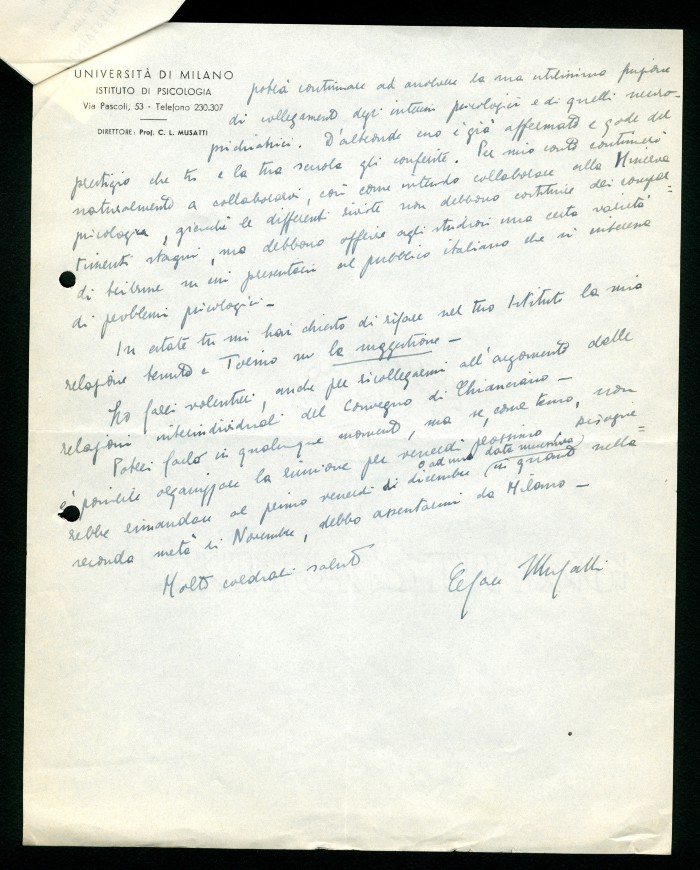 UNIVERSITÀ DI MILANO
ISTITUTO DI PSICOLOGIA
Via Pascoli, 53 - Telefono 230.307
DIRETTORE: Prof. C. L. MUSATTI
potrà continuare ad assolvere la sua utilissima funzione
di collegamento degli interessi psicologici e di quelli neuro-
psichiatrici. D'altronde essa è già affermata e gode del
prestigio che tu e la tua scuola gli conferite. Per mio conto continuerò
naturalmente a collaborarvi, così come intendo collaborare alla Minerva
psicologica, giacché le differenti riviste non debbono costituire dei compar=
timenti stagni, ma debbono offrire agli studiosi una certa varietà
di tribune su cui presentarsi al pubblico italiano che si interessa
di problemi psicologici -
In estate tu mi hai chiesto di rifare nel tuo Istituto la mia
relazione tenuta a Torino su la suggestione -
Lo farei volentieri, anche per ricollegarmi all'argomento delle
relazioni interindividuali del Convegno di Chianciano -
Potrei farlo in qualunque momento, ma se, come temo, non
è possibile organizzare la riunione per venerdì prossimo bisogne
rebbe rimandare al primo venerdì di dicembre o ad una data successiva in quanto nella=
seconda metà di Novembre, debbo assentarmi da Milano -
Molti cordiali saluti
Cesare Musatti